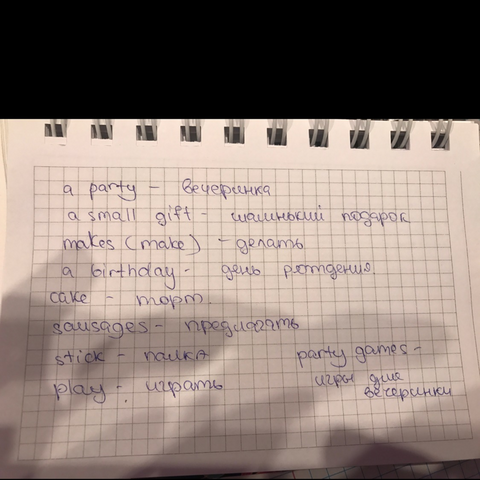 a party - вечеринка
a small gift - машинький подарок
makes (make) - делать
a birthday - день рятдения
cake - торт.
sausages - предлагать
stick - палка
party games -
play - играть
игры для
вечеринки